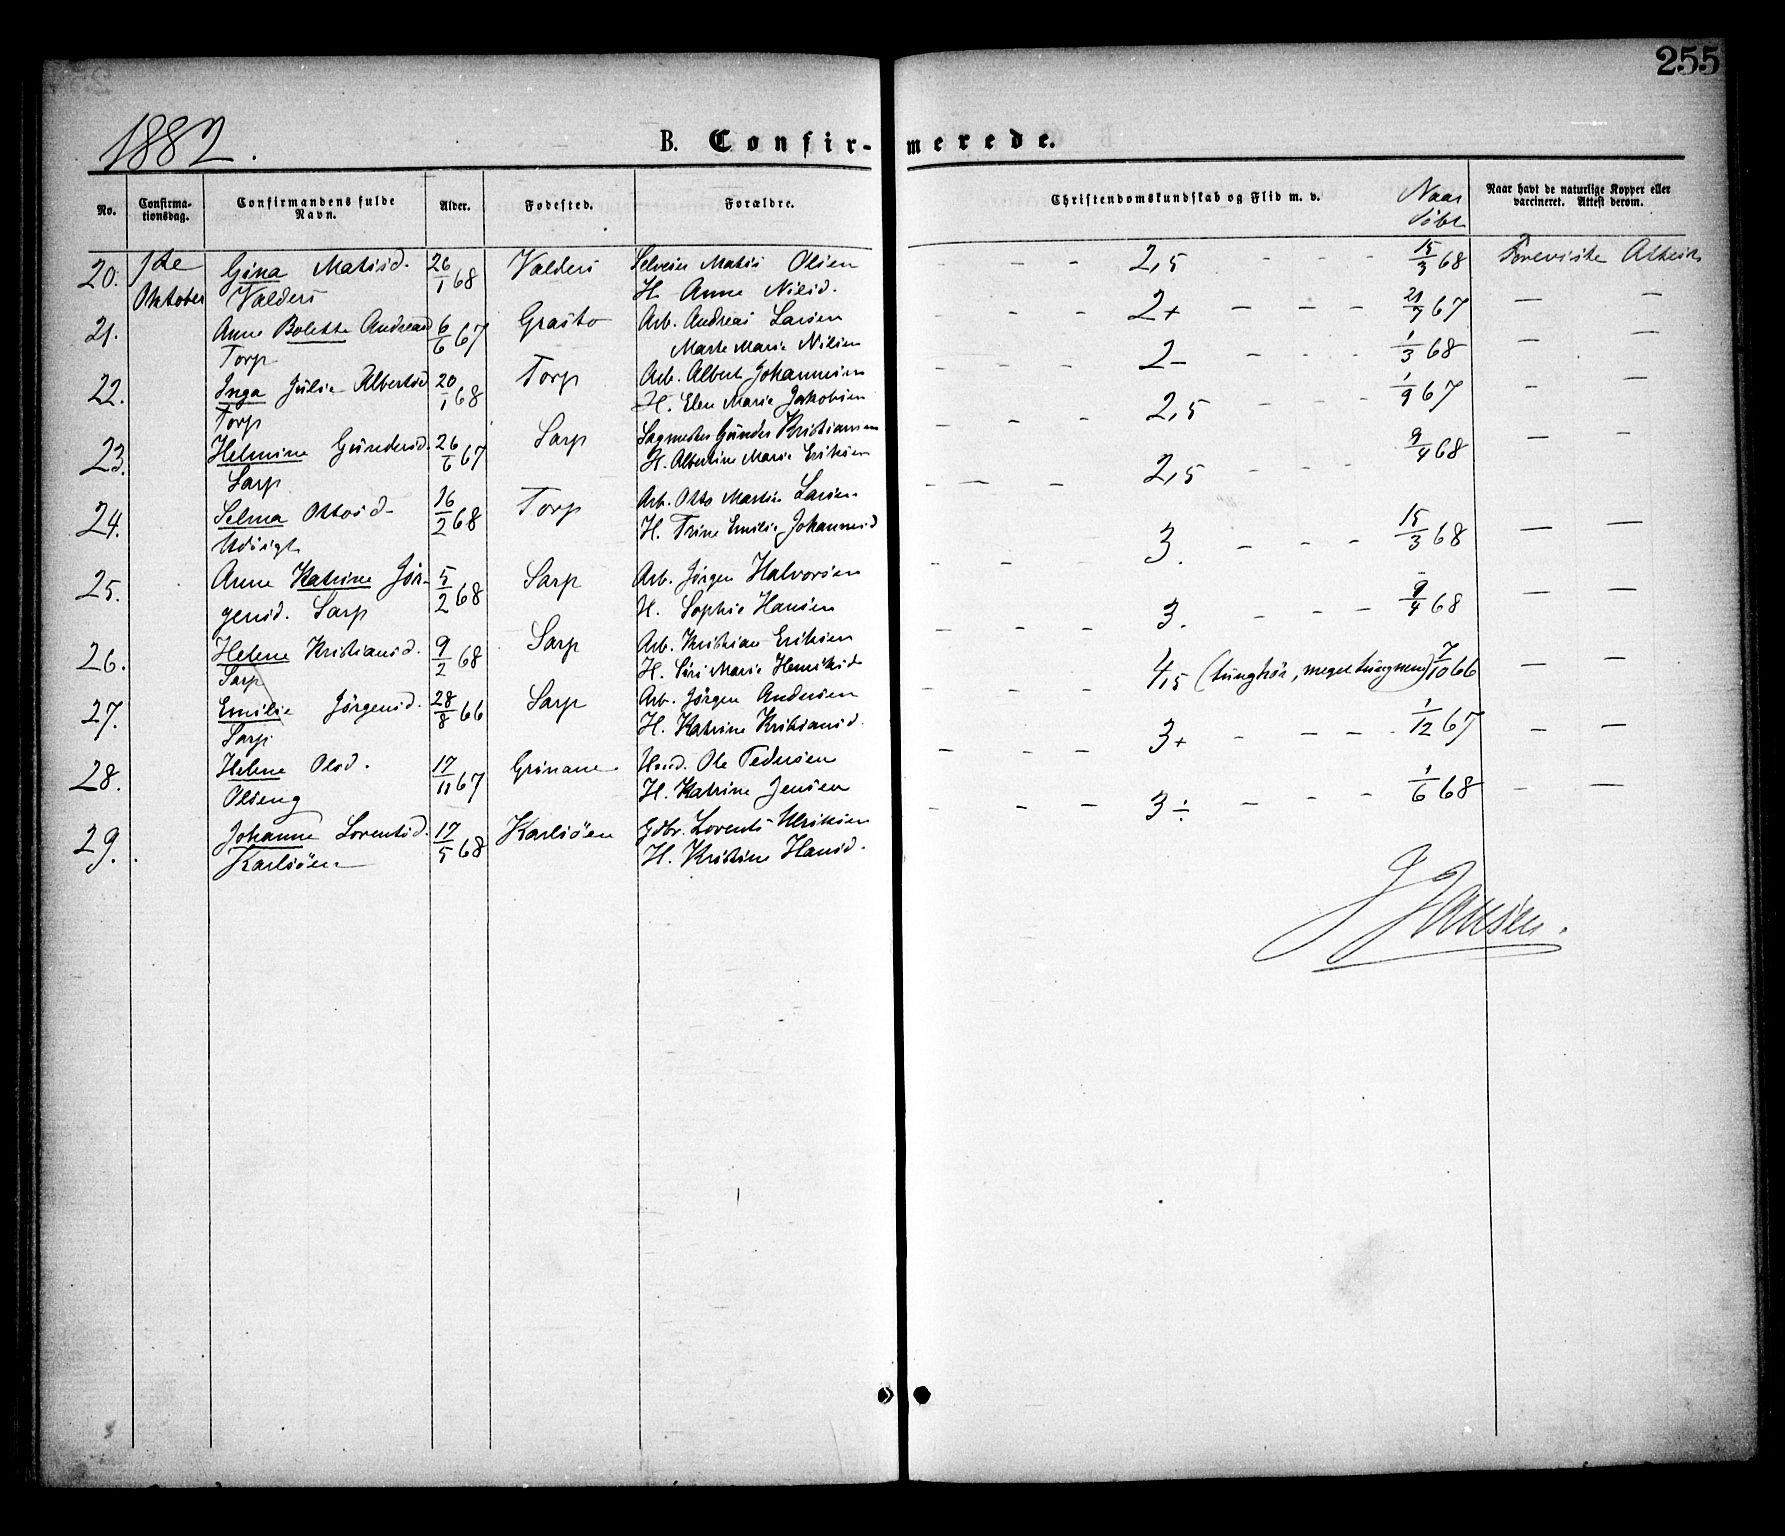 255
1882.
B. Confir-merede.
No. Confirma-tionsdag. Confirmandens fulde Navn. Alder. Fødested. Forældre. Christendomskundskab og Flid m. v. Naar døbt Naar havt de naturlige Kopper eller vaccineret. Attest derom.
20. 1ste Gina Matisd. 26/1 68 Valders Matis Olsen - - - 2,5 - - - 15/3 68 Foreviste Attest
Oktober Valders H. Anne Nilsd.
21. Anne Bolette Andreasd 6/6 67 Grasto Arb. Andreas Larsen - - - 2+ - - - 21/7 67 — —
Torp Marte Marie Nilsen
22. Inga Julie Albertsd 20/1 68 Torp Arb. Albert Johannesen - - - 2- - - - 1/3 68 — —
Torp H. Elen Marie Jakobsen
23. Helmine Gundersd. 26/6 67 Sarp Sagmester Gunder Kristiansen - - - 2,5 - - - 1/9 67 - —
Sarp H. Albertine Marie Eriksen
24. Selma Ottosd- 16/2 68 Torp Arb. Otto Martin Larsen - — - 2,5 - - - 9/4 68 — -
Udsigt H. Trine Emilie Johannesd
25. Anne Katrine Jør- 5/2 68 Sarp Arb. Jørgen Halvorsen - - - 3. - - - 15/3 68 — —
gensd. Sarp H. Sophie Hansen
26. Helene Kristiansd. 9/2 68 Sarp Arb. Kristian Eriksen - - - 3. - - - 9/4 68 — —
Sarp H. Siri Marie Henriksd
27. Emilie Jørgensd. 28/8 66 Sarp Arb. Jørgen Andersen - - - 4,5 (tunghør, meget tungnem) 7/10 66 — —
Sarp H. Katrine Kristiansd.
28. Helene Olsd. 17/11 67 Grønane Ole Pedersen - - - 3+ - - - 1/12 67 - —
Olseng H. Katrine Jensen
29. Johanne Lorentsd. 17/5 68 Karlsöen Gdbr. Lorents Ulriksen - - - 3÷ - - - 1/6 68 - —
Karlsöen H. Kristine Hansd.
J Jansen.